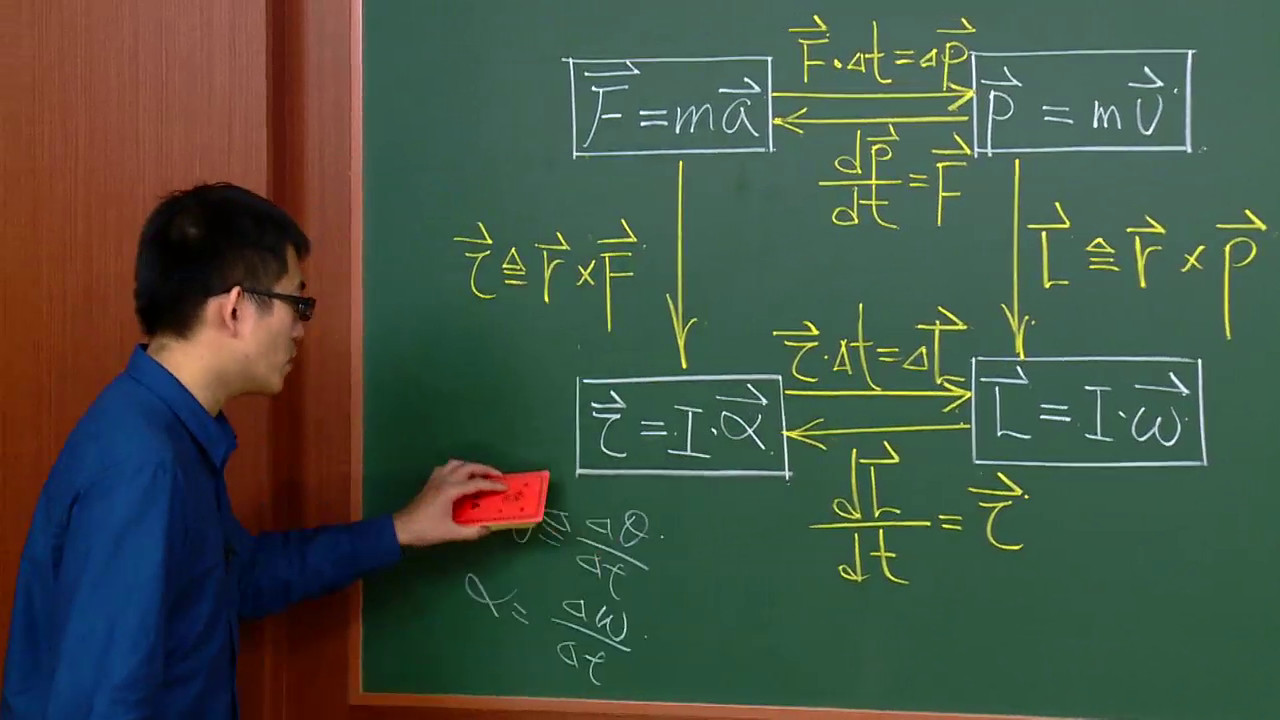 $\vec{F} = m\vec{a}$
$\vec{F} \cdot \Delta t = \Delta \vec{p}$
$\vec{p} = m\vec{v}$
$\frac{d\vec{p}}{dt} = \vec{F}$
$\vec{\tau} \triangleq \vec{r} \times \vec{F}$
$\vec{L} \triangleq \vec{r} \times \vec{p}$
$\vec{\tau} \cdot \Delta t = \Delta \vec{L}$
$\vec{\tau} = I \cdot \vec{\alpha}$
$\vec{L} = I \cdot \vec{\omega}$
$\frac{d\vec{L}}{dt} = \vec{\tau}$
$\frac{\Delta \theta}{\Delta t}$
$\alpha = \frac{\Delta \omega}{\Delta t}$